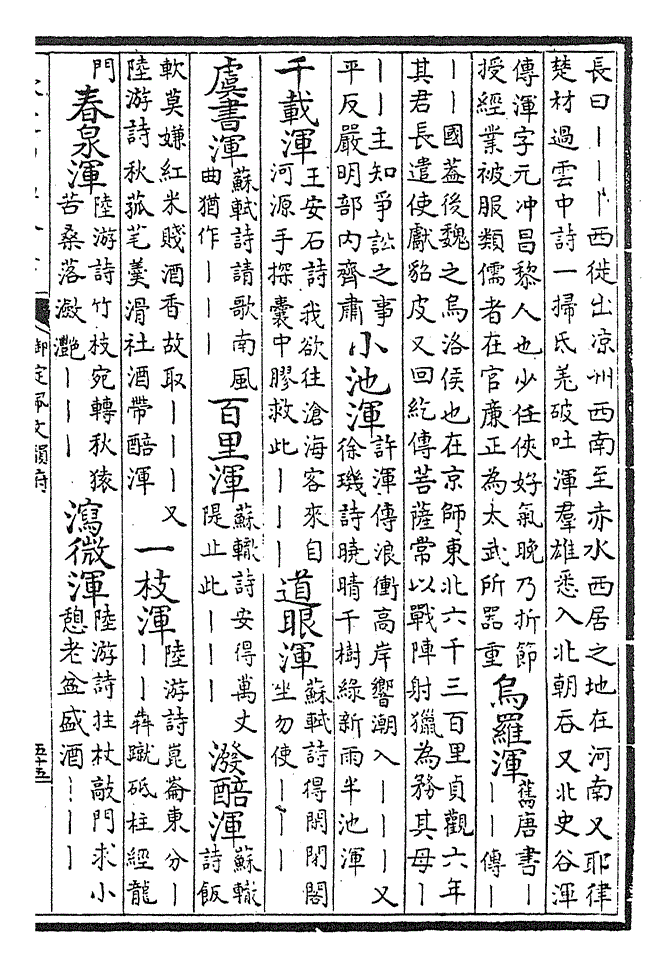 長曰丨丨丨西徙出凉州西南至赤水西居之地在河南又耶律
楚材過雲中詩一掃氐羌破吐渾羣雄悉入北朝吞又北史谷渾
傳渾字元冲昌黎人也少任俠好氣晚乃折節
授經業被服類儒者在官廉正為太武所器重
烏羅渾
舊唐書丨
丨丨傳丨
丨丨國蓋後魏之烏洛侯也在京師東北六千三百里貞觀六年
其君長遣使獻貂皮又回紇傳菩薩常以戰陣射獵為務其母丨
丨丨主知爭訟之事
平反嚴明部内齊肅
小池渾
許渾傳浪衝高岸響潮入丨丨丨又
徐璣詩曉晴千樹緑新雨半池渾
千載渾
王安石詩我欲往滄海客來自
河源手探囊中膠救此丨丨丨
道眼渾
蘇軾詩得閒閉閤
坐勿使丨丨丨
虞書渾
蘇軾詩請歌南風
曲猶作丨丨丨
百里渾
蘇轍詩安得萬丈
隄止此丨丨丨
潑醅渾
蘇轍
詩飯
軟莫嫌紅米賤酒香故取丨丨丨又
陸游詩秋菰芼羹滑社酒帶醅渾
一枝渾
陸游詩崑崙東分丨
丨丨犇蹴砥柱經龍
門
春泉渾
陸游詩竹枝宛轉秋猿
苦桑落瀲灧丨丨丨
瀉微渾
陸游詩拄杖敲門求小
憩老盆盛酒丨丨丨
御定佩文韻府
五十五